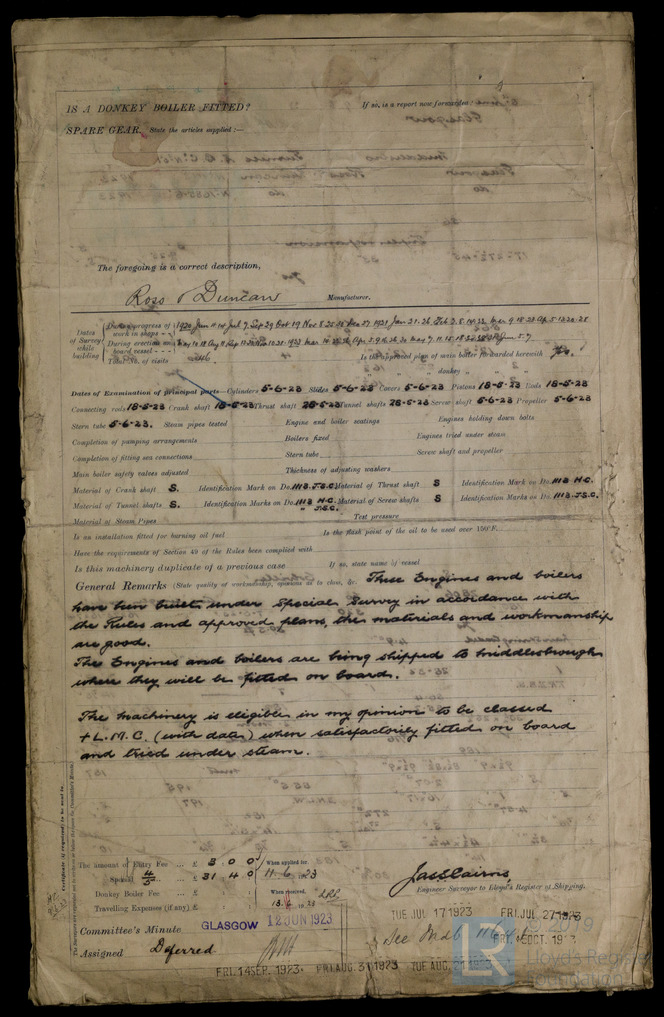 IS A DONKEY BOILER FITTED?
If so, is a report now forwarded?
SPARE GEAR. State the articles supplied :—
The foregoing is a correct description,
Ross & Duncan Manufacturer.
Dates of Survey while building
During progress of work in shops - -
During erection on board vessel - - -
Total No. of visits
Is the approved plan of main boiler forwarded herewith Yes.
" " " donkey " " "
Dates of Examination of principal parts—Cylinders 5-6-23 Slides 5-6-23 Covers 5-6-23 Pistons 18-5-23 Rods 18-5-23
Connecting rods 18-5-23 Crank shaft 18-5-23 Thrust shaft 28-5-23 Tunnel shafts 28-5-23 Screw shaft 5-6-23 Propeller 5-6-23
Stern tube 5-6-23. Steam pipes tested Engine and boiler seatings Engines holding down bolts
Completion of pumping arrangements Boilers fixed Engines tried under steam
Completion of fitting sea connections Stern tube Screw shaft and propeller
Main boiler safety valves adjusted Thickness of adjusting washers
Material of Crank shaft S. Identification Mark on Do. 1113 J.S.C. Material of Thrust shaft S Identification Mark on Do. 1113 H.C.
Material of Tunnel shafts S. Identification Marks on Do. 1113 H.C. " J.S.C. Material of Screw shafts S Identification Marks on Do. 1113 J.S.C.
Material of Steam Pipes Test pressure
Is an installation fitted for burning oil fuel Is the flash point of the oil to be used over 150°F.
Have the requirements of Section 49 of the Rules been complied with
Is this machinery duplicate of a previous case If so, state name of vessel
General Remarks (State quality of workmanship, opinions as to class, &c. These Engines and boilers
have been built under Special Survey in accordance with
the Rules and approved plans, the materials and workmanship
are good.
The Engines and boilers are being shipped to Middlesbrough
where they will be fitted on board.
The machinery is eligible in my opinion to be classed
+ L.M.C. (with date) when satisfactorily fitted on board
and tried under steam.
The amount of Entry Fee ... £ 3 0 0
When applied for.
Special 4/5 ... £ 31 4 0
11 6 23
Donkey Boiler Fee ... £
When received.
Travelling Expenses (if any) £
Jas S Cairns
Engineer Surveyor to Lloyd's Register of Shipping.
Committee's Minute GLASGOW 12 JUN 1923
TUE. JUL 17 1923 FRI. JUL 27 1923
Assigned Deferred
FRI. 14 SEP. 1923 FRI. AUG. 31 1923 TUE. AUG. 21 1923
© 2019
Lloyd's Register
Foundation